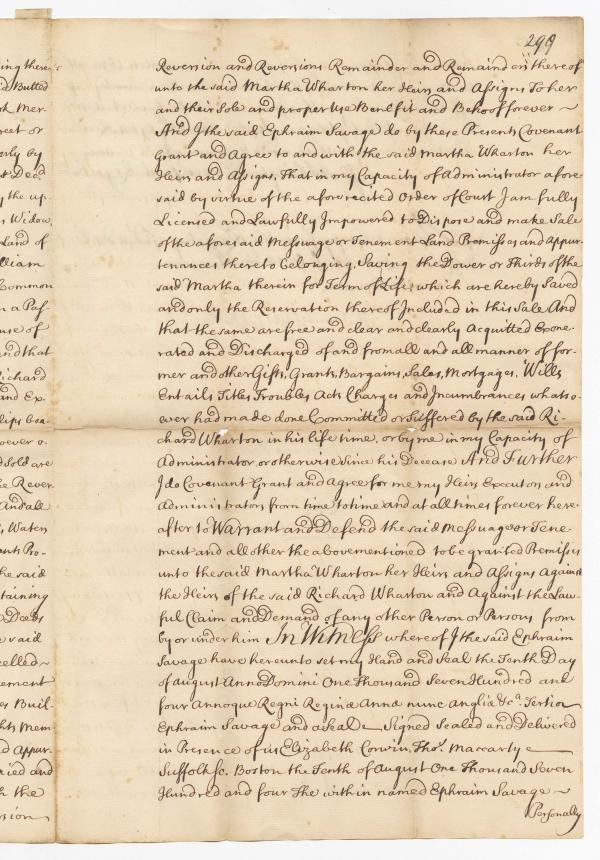 299
ing there
id Butted
th Mer-
reet or
erly by
t Decd
y the up-
s Widow,
Land of
illiam
Common
n a Pas-
use of
and that
Richard
and Ex
lips bea-
oever o-
d Sold are
he Rever
And all
s, Waters
ents Pro-
he said
taining
Deeds
e said
celled
ement
es Buil-
hts Mem
d Appur
ried and
h the
rsion
Reversion and Reversions Remainder and Remainders thereof
unto the said Martha Wharton her Heirs and Assigns To her
and their Sole and proper Use Benefit and Behoof forever ~
And I the said Ephraim Savage do by these Presents Covenant
Grant and Agree to and with the said Martha Wharton her
Heirs and Assigns, That in my Capacity of Administrator afore
said by virtue of the aforerecited Order of Court I am fully
Licensed and Lawfully Impowered to Dispose and make Sale
of the aforesaid Messuage or Tenement Land Premisses and Appur-
tenances thereto belonging, Saving the Dower or Thirds of the
said Martha therein for Term of Life, which are hereby Saved
and only the Reservation thereof Included in this Sale And
that the same are free and clear and clearly Acquitted Exone-
rated and Discharged of and from all and all manner of for-
mer and other Gifts, Grants, Bargains, Sales, Mortgages, Wills
Entails Titles Troubles Acts Charges and Incumbrances whatso-
ever had made done Committed or Suffered by the said Ri-
chard Wharton in his life time, or by me in my Capacity of
Administrator, or otherwise Since his Decease And Further
I do Covenant Grant and Agree for me my Heirs Executors and
Administrators from time to time and at all times forever here
after to Warrant and Defend the said Messuage or Tene-
ment and all other the abovementioned to be granted Premisses
unto the said Martha Wharton her Heirs and Assigns Against
the Heirs of the said Richard Wharton and Against the Law-
ful Claim and Demand of any other Person or Persons from
by or under him In Witness whereof I the said Ephraim
Savage have hereunto set my Hand and Seal the Tenth Day
of August Anno Domini One Thousand Seven Hundred and
four Annoque Regni Reginæ Annæ nunc Angliæ &ca. Tertio
Ephraim Savage and a Seal Signed Sealed and Delivered
in Presence of us Elizabeth Corwin, Thos. Maccarty
Suffolk sc. Boston the Tenth of August One Thousand Seven
Hundred and four The within named Ephraim Savage ~
Personally